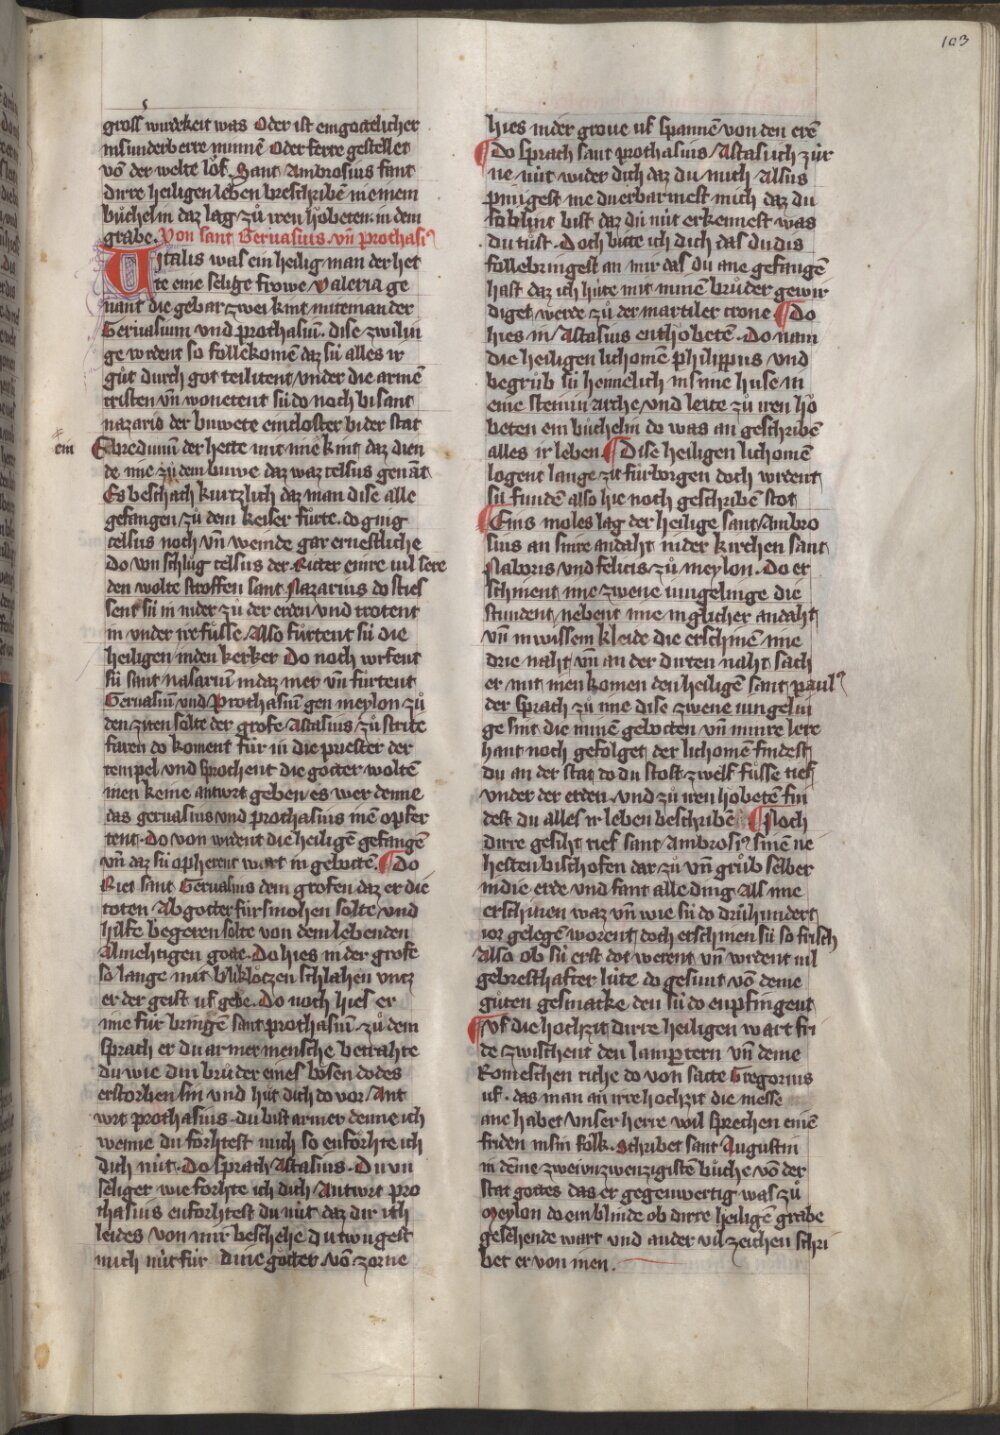 103
grosſ wirdekeit was Oder ist ein gottelicher
in sunderberre minnē Oder ferre gestellet
võ der welte lŏf. Sant Ambrosius fant
dirre heiligen leben beschribē in einem
bůchelin daz lag zů iren hŏbeten in dem
grabe. Von sant Geruasius vn̄ prothasi9
Uitalis was ein heilig man der het
te eine selige frowe Valeria ge
nant die gebar zwei kint mitenander
Geruasium vnd prothasiū. dise zwilin
ge wrdent so follekomē daz sü alles ir
gůt durch got teilitent vnder die armē
cristen vn̄ wonetent sü do noch bi sant
nazario der buwete ein closter bi der stat
ein Ebredunum der hette mit ime kint daz dien
de ime zů dem buwe daz waz celsus genāt
Es beschach kurtzlich daz man dise alle
gefangen zů dem keiser fůrte. do ging
celsus noch vn̄ weinde gar ernestliche
Do von schlůg celsus der Ritter einre vil sere
den wolte stroffen sant Nazarius do sties
sent sü in nider zů der erden vnd trotent
in vnder ire fůsse Also fůrtent sü die
heiligen in den kerker Do noch wrfent
sü sant nasariū in daz mer vn̄ fürtent
Geruasiū vnd Prothasiū gen meylon zů
den ziten solte der grofe Astasius zů strite
faren do koment für in die priester der
tempel vnd sprochent die gotter woltē
inen keine antwrt geben es wer denne
das geruasius vnd prothasius inē opfer
tent. Do von wrdent die heiligē gefangē
vn̄ daz sü opherent wart in gebottē. Do
Riet sant Geruasius dem grofen daz er die
toten Abgotter fürsmohen solte vnd
hilfe begeren solte von dem lebenden
Almehtigen gotte. Do hies in der grofe
so lange mit blikloͤtzen schlahen vntz
er der geist uf gebe. Do noch hies er
ime für bringē sant prothasiū. zů dem
sprach er du armer mensche betrahte
du wie din brůder eines bösen dodes
erstorben sin vnd hůt dich do vor Ant
wrt prothasius. du bist armer denne ich
wenne du forhtest mich so enforhte ich
dich nüt. Do sprach Astasius. Du vn
seliger wie forhte ich dich Antwrt pro
thasius enforhtest du nüt daz dir ich
leides von mir beschehe du twngest
mich nüt für dine götter võ zorne
hies in der groue uf spannē von den erē
Do sprach sant prothasius Astasi ich zür
ne nüt wider dich daz du mich Alsus
pinigest me du erbarmest mich daz du
so blint bist daz du nüt erkennest was
du tůst. Doch bitte ich dich das du dis
follebringest an mir das du ane gefangē
hast daz ich hüte mit minē brůder gewir
diget werde zů der martiler crone Do
hies in Astasius enthobetē. Do nam
die heiligen lichomē philippus vnd
begrůb sü heimelich in sime huse in
eine steinin Arche vnd leite zů iren hŏ
beten ein bůchelin do was an geschribē
alles ir leben Dise heiligen lichomē
logent lange zit fürborgen doch wrdent
sü fundē also hie noch geschribē stot
Eins moles lag der heilige sant Ambro
sius an sinre andaht in der kirchen sant
Naboris vnd felicis zů meylon. Do er
schinent ime zwene iungelinge die
stundent nebent ime in glicher andaht
vn̄ in wissem kleide die erschinē ime
drie naht vn̄ an der dirten naht sach
er mit inen komen den heiligē sant paul9
der sprach zů ime dise zwene iungelin
ge sint die minē gebotten vn̄ minre lere
hant noch gefolget der lichomē findest
du an der stat do du stost zwelf füsse tief
vnder der erden. vnd zů iren hobetē fin
dest du alles ir leben beschribē Noch
dirre gesiht rief sant Ambrosi9 sinē ne
hesten bischofen dar zů vn̄ grůb selber
in die erde vnd fant alle ding Als ime
erschinen waz vn̄ wie sü do drühundert
ior gelegē worent doch erschinen sü so frisch
Also ob sü erst dot werent vn̄ wrdent vil
gebresthafter lüte do gesunt võ deme
gůten gesmacke den sü do enpfingent
Vf die hochzit dirre heiligen wart fri
de zwischent den lampertern vn̄ deme
Romeschen riche do von satte Gregorius
uf. das man an irre hochzit die messe
ane habet Vnser herre wil sprechen einē
friden in sin folk. Schribet sant Augustin
in deme zwei vn zwenzigistē bůche võ der
stat gottes das er gegenwertig was zů
Meylon do ein blinde ob dirre heiligē grabe
gesehende wart vnd ander vil zeichen schri
bet er von inen.